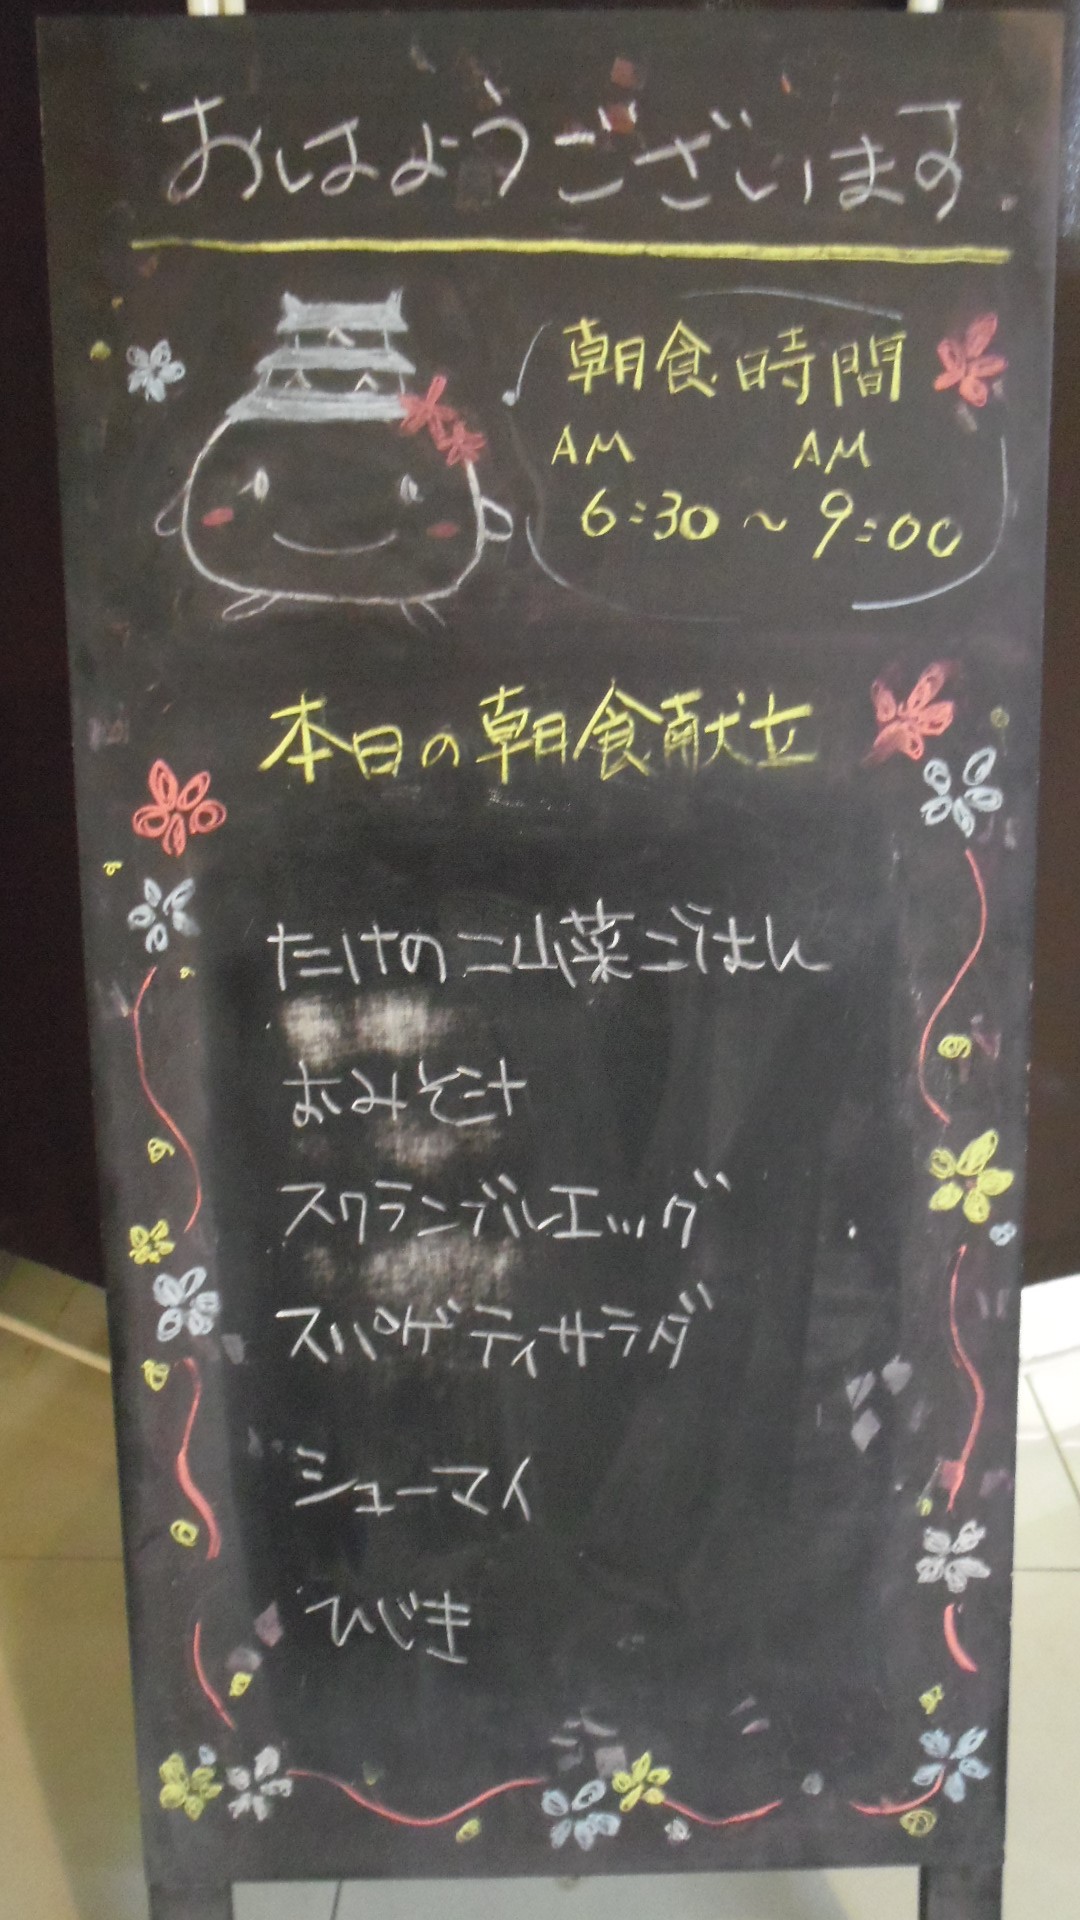 おはようございます.
朝食時間
AM AM
6:30～9:00
本日の朝食献立
たけのこ山菜ごはん
おみそ汁
スクランブルエッグ
スパゲティサラダ
シューマイ
ひじき